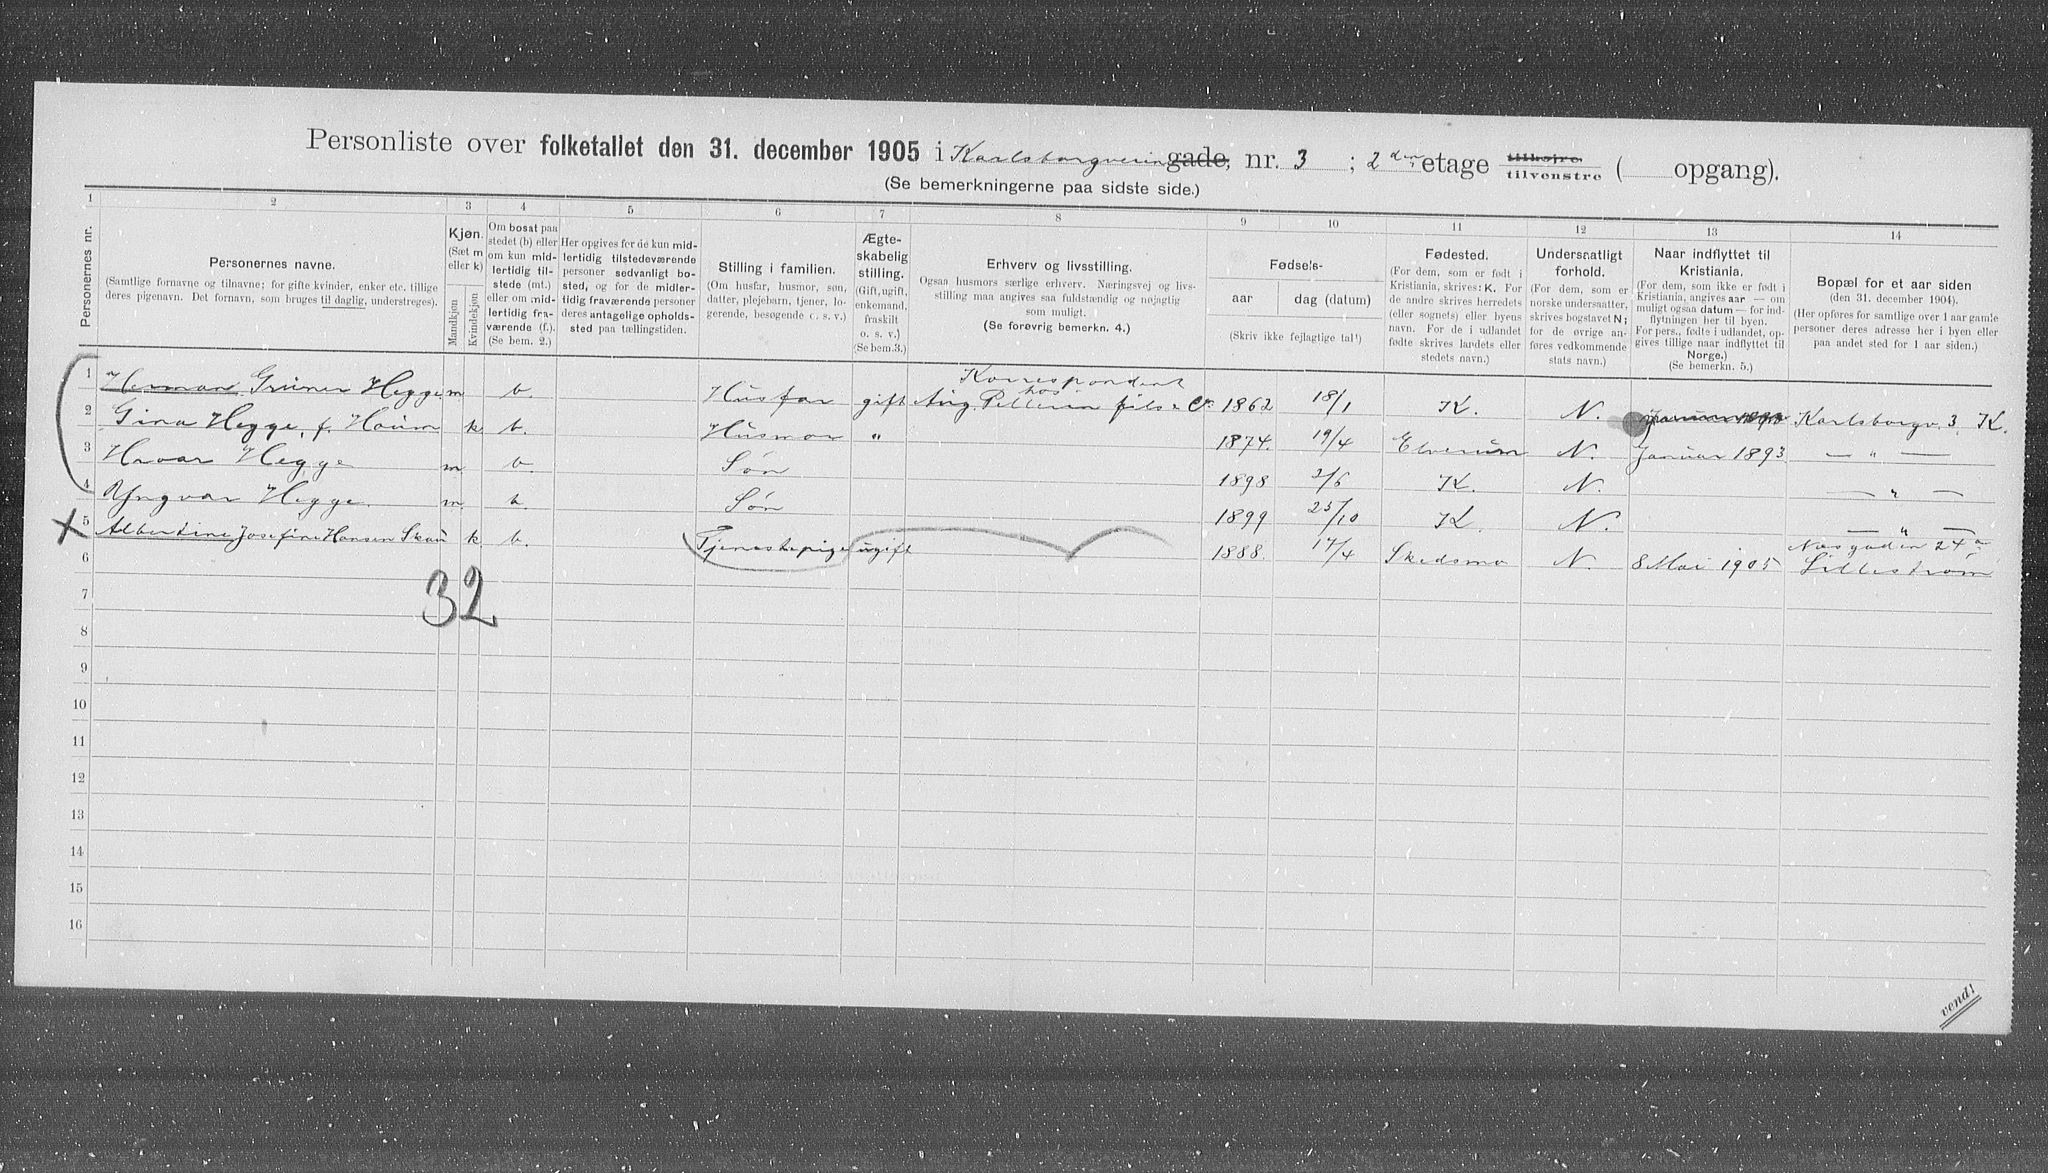 Personliste over folketallet den 31. december 1905 i Karlsborgveien gade, nr. 3 ; 2 den etage tilhøjre. tilvenstre ( opgang).
(Se bemerkningerne paa sidste side.)
1 2 3 4 5 6 7 8 9 10 11 12 13 14
Personernes nr.
Personernes navne.
(Samtlige fornavne og tilnavne; for gifte kvinder, enker etc. tillige deres pigenavn. Det fornavn, som bruges til daglig, understreges).
Kjøn.
(Sæt m eller k)
Mandkjøn
Kvindekjøn
Om bosat paa stedet (b) eller om kun midlertidig tilstede (mt.) eller om midlertidig fraværende (f.). (Se bem. 2.)
Her opgives for de kun midlertidig tilstedeværende personer sedvanligt bosted, og for de midlertidig fraværende personer deres antagelige opholdssted paa tællingstiden.
Stilling i familien.
(Om husfar, husmor, søn, datter, plejebarn, tjener, logerende, besøgende o. s. v.)
Ægteskabelig stilling.
(Gift, ugift, enkemand, fraskilt o. s. v.)
(Se bem.3.)
Erhverv og livsstilling.
Ogsaa husmors særlige erhverv. Næringsvej og livsstilling maa angives saa fuldstændig og nøjagtig som muligt.
(Se forøvrig bemerkn. 4.)
Fødsels-
aar dag (datum)
(Skriv ikke fejlagtige tal!)
Fødested.
(For dem, som er født i Kristiania, skrives: K. For de andre skrives herredets (eller sognets) eller byens navn. For de i udlandet fødte skrives landets eller stedets navn.)
Undersaatligt forhold.
(For dem, som er norske undersaatter, skrives bogstavet N; for de øvrige anføres vedkommende stats navn.)
Naar indflyttet til Kristiania.
(For dem, som ikke er født i Kristiania, angives aar — om muligt ogsaa datum — for indflytningen her til byen. For pers., født i udlandet, opgives tillige naar indflyttet til Norge.)
(Se bemerkn. 5.)
Bopæl for et aar siden
(den 31. december 1904).
(Her opføres for samtlige over 1 aar gamle personer deres adresse her i byen eller paa andet sted for 1 aar siden.)
1 Herman Grüner Hegge m b. Husfar gift Korrespondent hos Aug. Pellerin fils & Co. 1862 18/1 K. N. Januar 1893 Karlsborgv. 3. K.
2 Gina Hegge, f. Houm k b. Husmor " 1874. 19/4 Elverum N. Januar 1893 — " —
3 Hroar Hegge m b. Søn 1898 2/6 K. N. — " —
4 Yngvar Hegge. m b. Søn 1899 25/10 K. N. — " —
5 Albertine Josefine Hansen Skau k. b. Tjenestepige ugift 1888. 17/4 Skedsmo N. 8 Mai 1905 Næsgaden 24 a Lillestrøm
6
32
7
8
9
10
11
12
13
14
15
16
vend!